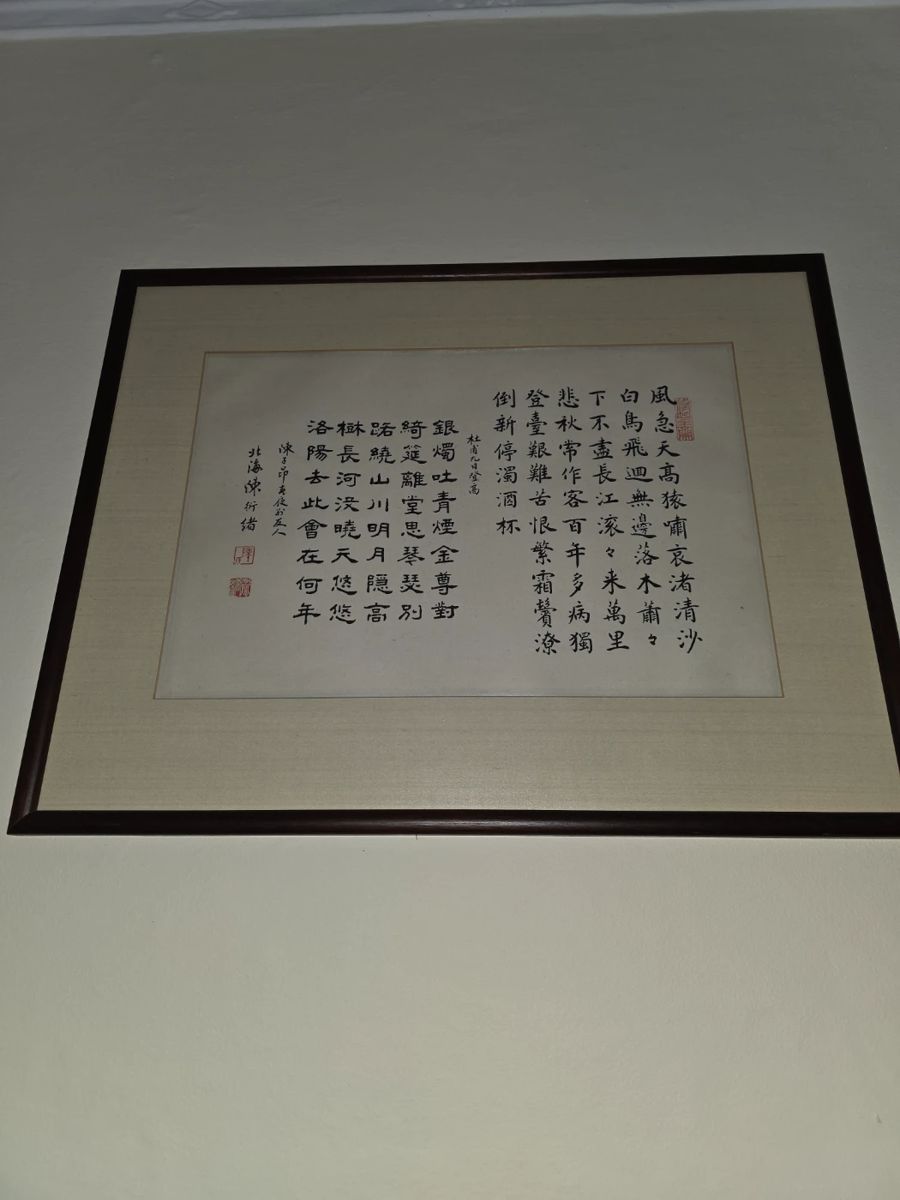 風急天高猿嘯哀渚清沙
白鳥飛迴無邊落木蕭々
下不盡長江滚々来萬里
悲秋常作客百年多病獨
登臺艱難苦恨繁霜鬢潦
倒新停濁酒杯
杜甫九日登高
銀燭吐青煙金尊對
綺筵離堂思琴瑟別
路繞山川明月隱高
樹長河没曉天悠悠
洛陽去此會在何年
陳子昂春夜別友人
北海陳衍緒